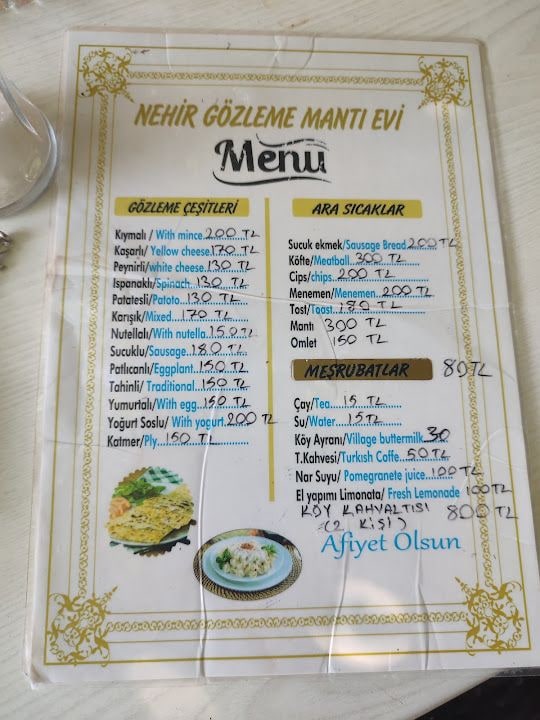 NEHİR GÖZLEME MANTI EVİ
Menu
GÖZLEME ÇEŞİTLERİ
Kıymalı / With mince 200 TL
Kaşarlı/ Yellow cheese 170 TL
Peynirli/white cheese 130 TL
Ispanaklı/Spinach 130 TL
Patatesli/Patato 130 TL
Karışık/Mixed 170 TL
Nutellalı/With nutella 150 TL
Sucuklu/Sausage 180 TL
Patlıcanlı/Eggplant 150 TL
Tahinli/ Traditional 150 TL
Yumurtalı/With egg 150 TL
Yoğurt Soslu/ With yogurt 200 TL
Katmer/Ply 150 TL
ARA SICAKLAR
Sucuk ekmek/Sausage Bread 200 TL
Köfte/Meatball 300 TL
Cips/chips 200 TL
Menemen/Menemen 200 TL
Tost/Toast 180 TL
Mantı 300 TL
Omlet 150 TL
MEŞRUBATLAR 80 TL
Çay/Tea 15 TL
Su/Water 15 TL
Köy Ayranı/Village buttermilk 30
T.Kahvesi/Turkısh Coffe 50 TL
Nar Suyu/ Pomegranete juice 100 TL
El yapımı Limonata/ Fresh Lemonade 100 TL
KÖY KAHVALTISI
(2 KİŞİ) 800 TL
Afiyet Olsun